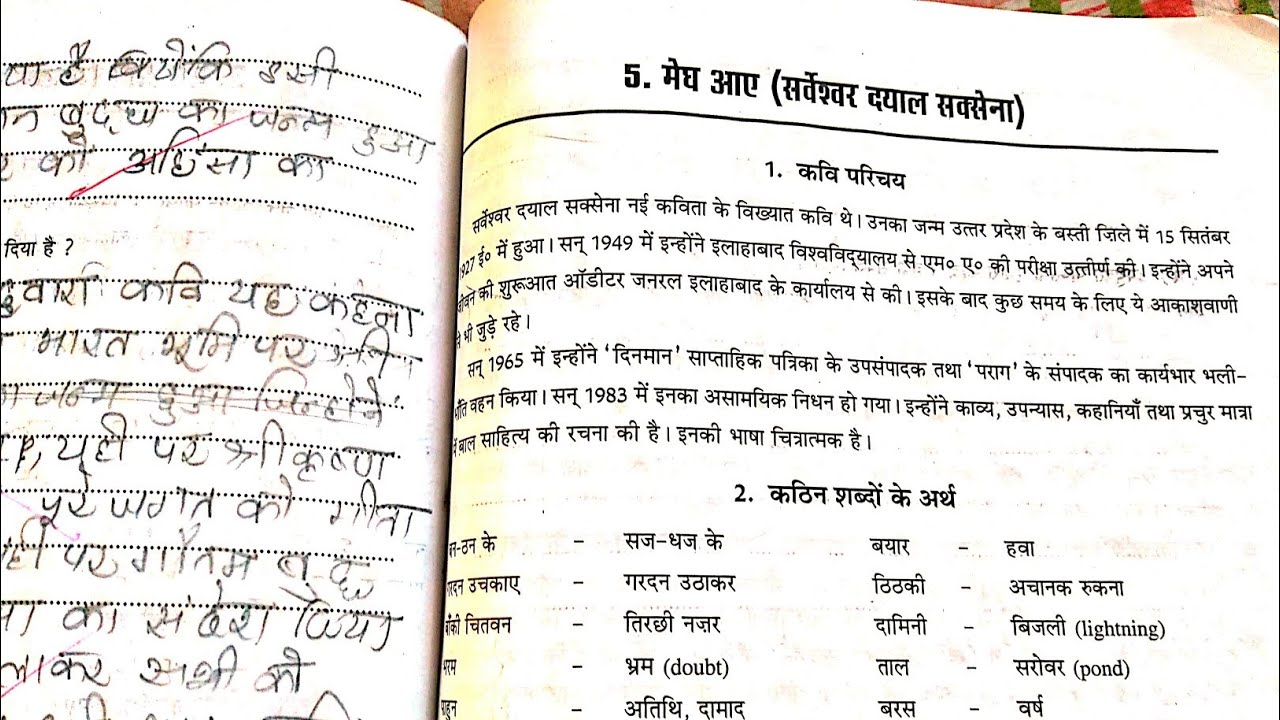 है क्योंकि इसी
बुद्ध का जन्म हुआ
को अहिंसा का
दिया है ?
कवि यह कहना
भारत भूमि पर
जन्म हुआ जिन्होंने
यही पर श्रीकृष्ण
पूरे जगत को गीता
पर गौतम बुद्ध
का संदेश दिया
सभी को
5. मेघ आए (सर्वेश्वर दयाल सक्सेना)
1. कवि परिचय
सर्वेश्वर दयाल सक्सेना नई कविता के विख्यात कवि थे। उनका जन्म उत्तर प्रदेश के वस्ती ज़िले में 15 सितंबर
1927 ई० में हुआ। सन् 1949 में इन्होंने इलाहाबाद विश्वविद्यालय से एम० ए० की परीक्षा उत्तीर्ण की। इन्होंने अपने
जीवन की शुरूआत ऑडीटर जनरल इलाहाबाद के कार्यालय से की। इसके बाद कुछ समय के लिए ये आकाशवाणी
से भी जुड़े रहे।
सन् 1965 में इन्होंने 'दिनमान' साप्ताहिक पत्रिका के उपसंपादक तथा 'पराग' के संपादक का कार्यभार भली-
भाँति वहन किया। सन् 1983 में इनका असामयिक निधन हो गया। इन्होंने काव्य, उपन्यास, कहानियाँ तथा प्रचुर मात्रा
में बाल साहित्य की रचना की है। इनकी भाषा चित्रात्मक है।
2. कठिन शब्दों के अर्थ
बन-ठन के – सज-धज के बयार – हवा
गरदन उचकाए – गरदन उठाकर ठिठकी – अचानक रुकना
बाँकी चितवन – तिरछी नज़र दामिनी – बिजली (lightning)
भरम – भ्रम (doubt) ताल – सरोवर (pond)
पाहुन – अतिथि, दामाद बरस – वर्ष